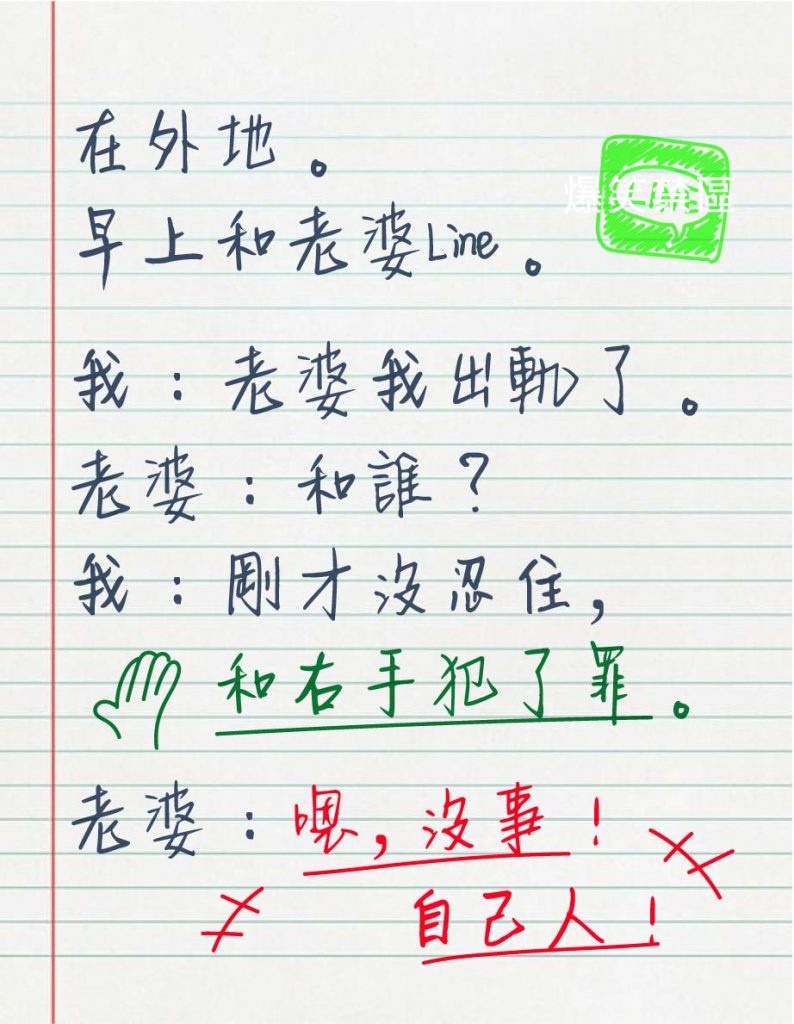 在外地。
爆笑禁區
早上和老婆Line。
我：老婆我出軌了。
老婆：和誰？
我：剛才沒忍住，
和右手犯了罪。
老婆：嗯，沒事！
自己人！